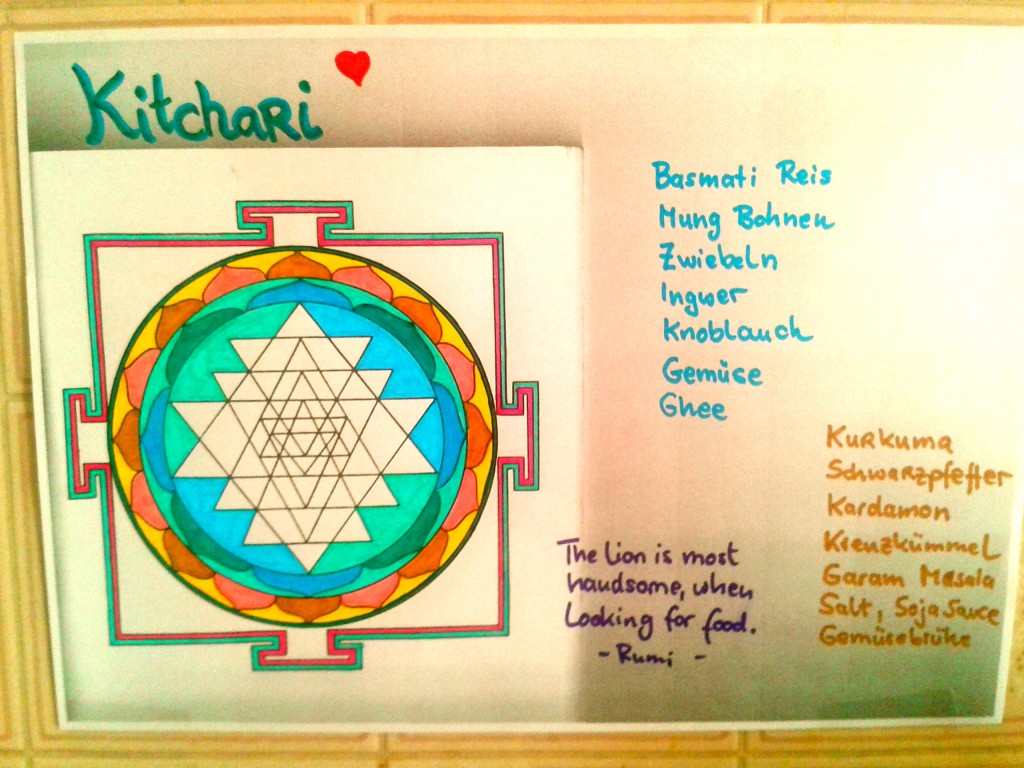 Kitchari
Basmati Reis
Mung Bohnen
Zwiebeln
Ingwer
Knoblauch
Gemüse
Ghee
Kurkuma
Schwarzpfeffer
Kardamon
Kreuzkümmel
Garam Masala
Salt, Soja Sauce
Gemüsebrühe
The Lion is most
handsome, when
Looking for food.
- Rumi -